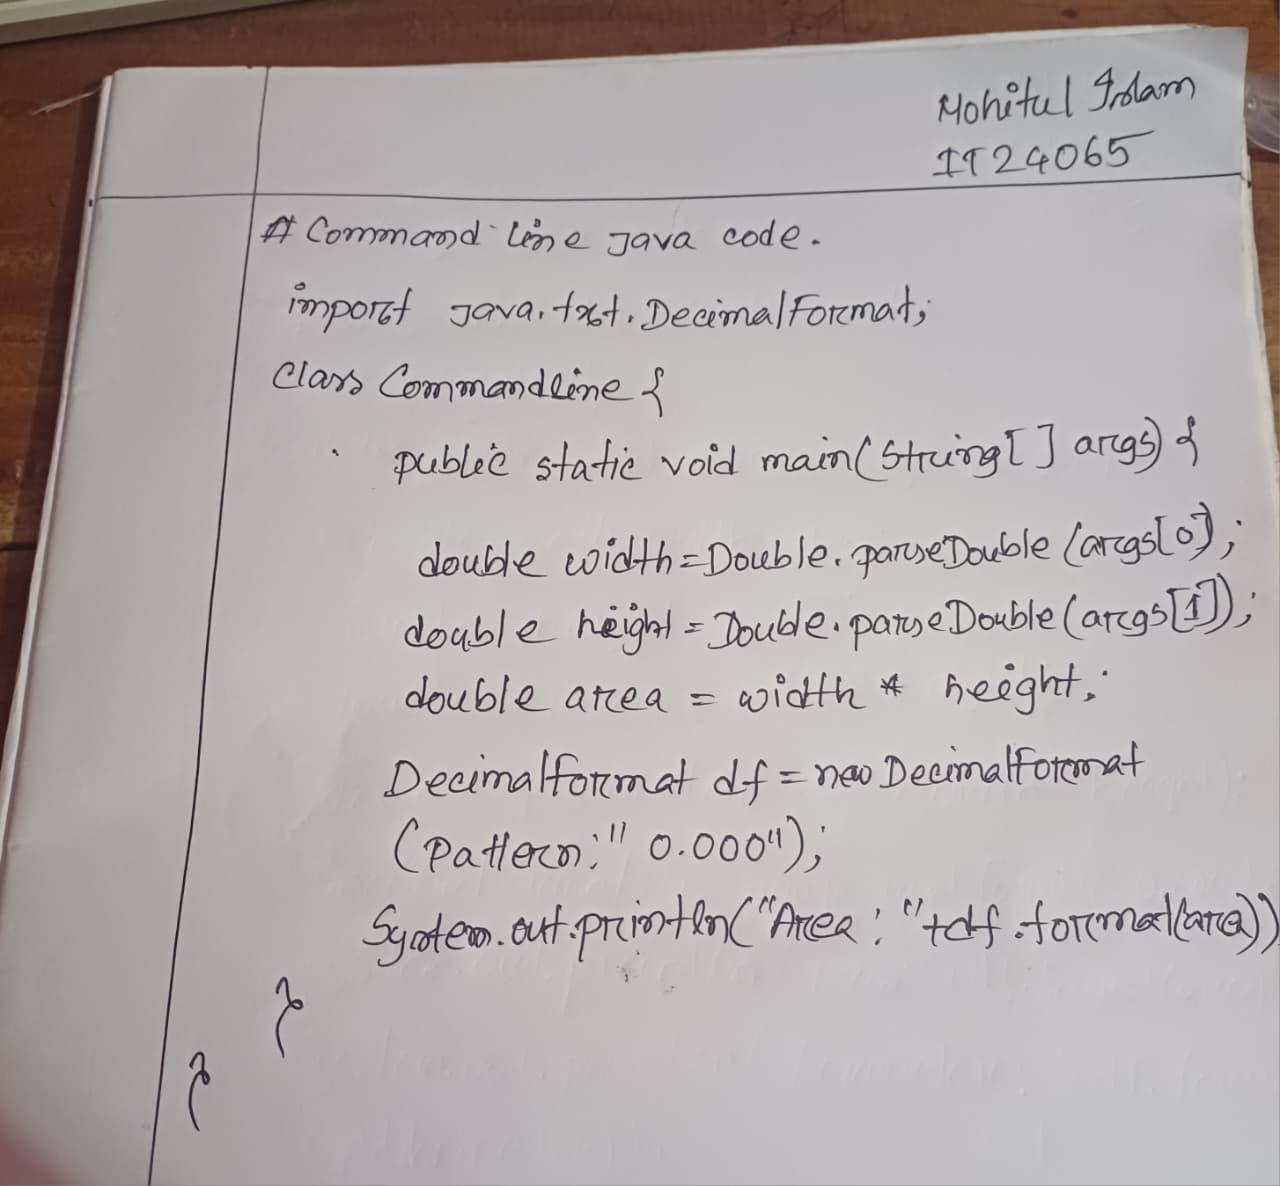 Mohitul Islam
IT24065
# Command line Java code.
import java.txt.DecimalFormat;
class Commandline {
public static void main(String[] args) {
double width = Double.parseDouble (args[0);
double height = Double.parseDouble (args[1]);
double area = width * height;
DecimalFormat df = new DecimalFormat
(Pattern: "0.000");
System.out.println("Area: "+df.format(area))
}
}